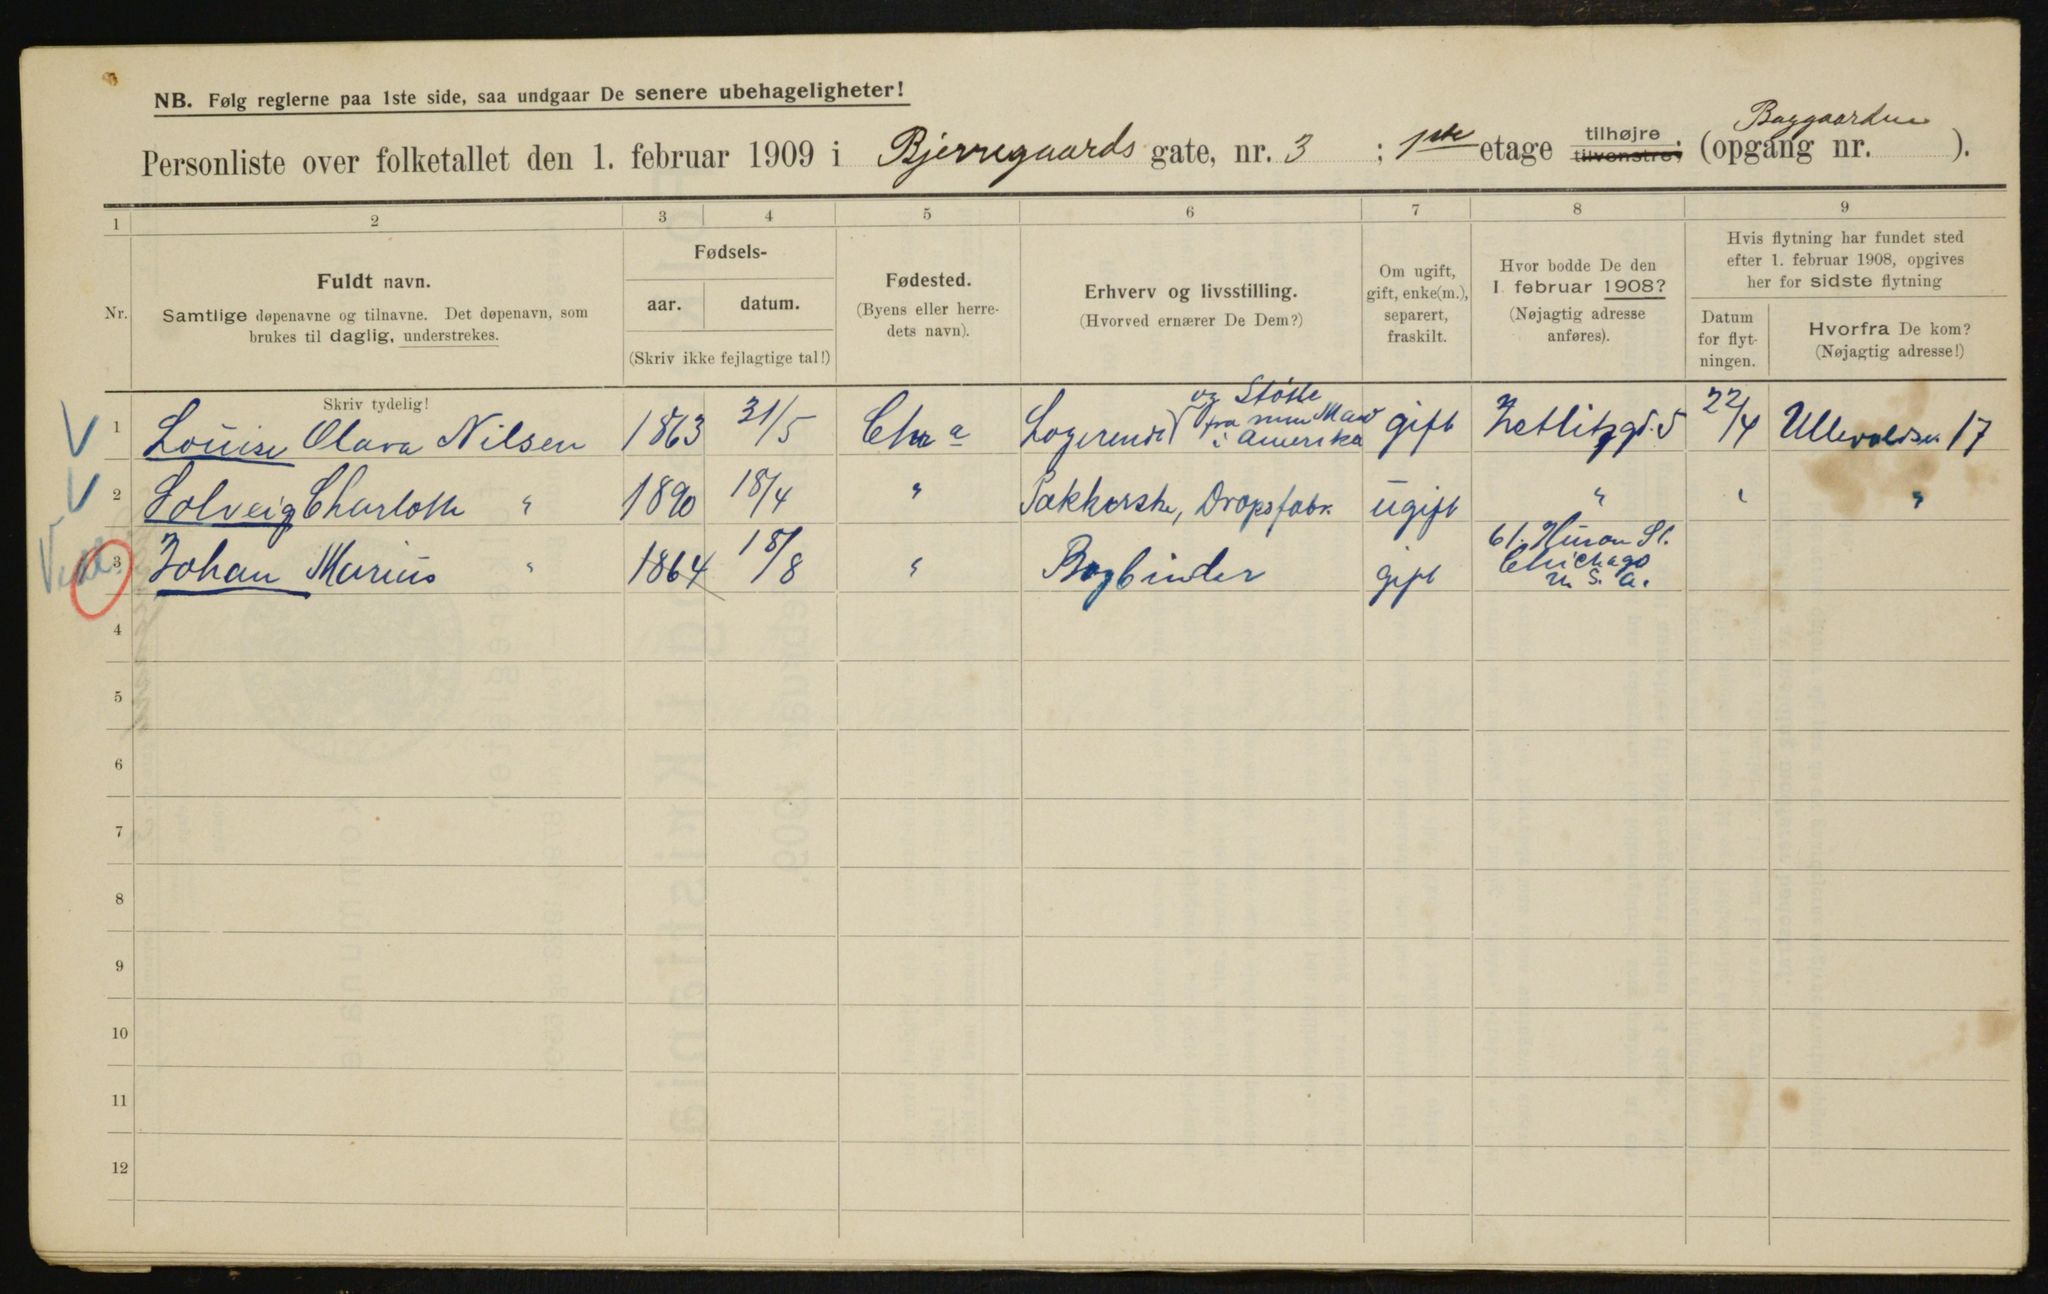 NB. Følg reglerne paa 1ste side, saa undgaar De senere ubehageligheter!
Personliste over folketallet den 1. februar 1909 i Bjerregaards gate, nr. 3 ; 1ste etage tilhøjre tilvenstre, (opgang nr. Baggaarden ).
1 2 3 4 5 6 7 8 9
Nr.
Fuldt navn.
Samtlige døpenavne og tilnavne. Det døpenavn, som
brukes til daglig, understrekes.
Fødsels-
aar. datum.
(Skriv ikke fejlagtige tal!)
Fødested.
(Byens eller herre-
dets navn).
Erhverv og livsstilling.
(Hvorved ernærer De Dem?)
Om ugift,
gift, enke(m.),
separert,
fraskilt.
Hvor bodde De den
1 februar 1908?
(Nøjagtig adresse
anføres).
Hvis flytning har fundet sted
efter 1. februar 1908, opgives
her for sidste flytning
Datum
for flyt-
ningen.
Hvorfra De kom?
(Nøjagtig adresse!)
Skriv tydelig!
V 1 Louise Olava Nilsen 1863 31/5 Chra Logerende og Støtte fra min Mand i Amerika gift Zetlitzgd. 5 22/4 Ullevoldsv. 17
V 2 Solveig Charlotte " 1890 18/4 " Pakkerske, Dropsfabr. ugift " " "
V 3 Johan Marius " 1864 18/8 " Bogbinder gift 61. Huron St. Chichago U. S. A.
4
5
6
7
8
9
10
11
12